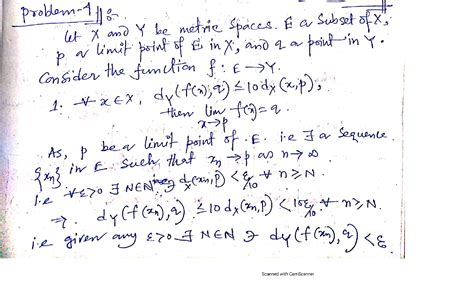 Problem-1
Let X and Y be metric spaces. E a subset of X,
p a limit point of E in X, and q a point in Y.
Consider the function f: E→Y.
1. ∀ x∈X, dy(f(x),q) ≤10dx(x,p),
then lim x→p f(x)=q.
As, p be a limit point of E. i.e ∃ a sequence
{xn} in E such that xn→p as n→∞
i.e ∀ε>0 ∃ N∈N dx(xn,p)<ε/10 ∀ n≥N.
⇒ dy(f(xn),q) ≤10dx(xn,p) <10ε/10 ∀ n≥N.
i.e given any ε>0 ∃ N∈N ∋ dy(f(xn),q)<ε
Scanned with CamScanner